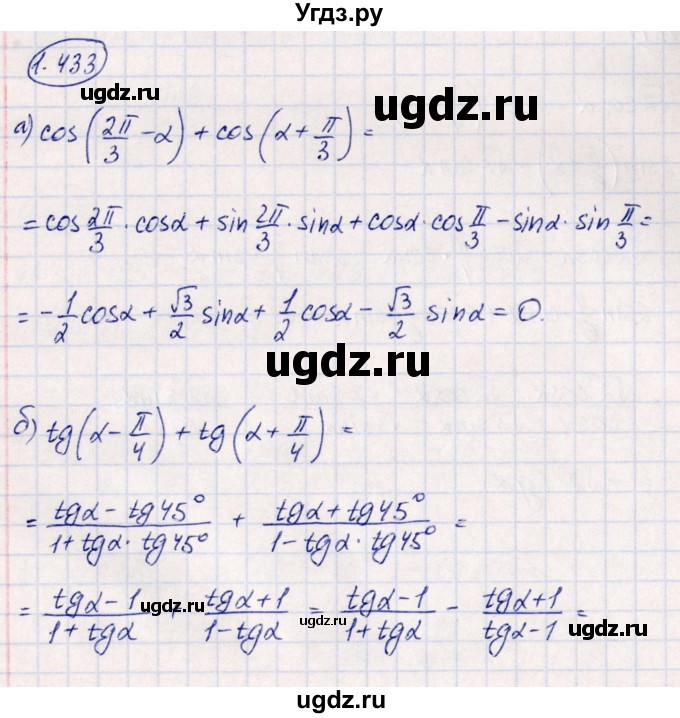 Угдз.ру
1.433
ugdz.ru
ugdz.ru
а) cos(2π/3 - α) + cos(α + π/3) =
= cos 2π/3 · cosα + sin 2π/3 · sinα + cosα · cos π/3 - sinα · sin π/3 =
= -1/2 cosα + √3/2 sinα + 1/2 cosα - √3/2 sinα = 0.
ugdz.ru
б) tg(α - π/4) + tg(α + π/4) =
= (tgα - tg45°)/(1 + tgα · tg45°) + (tgα + tg45°)/(1 - tgα · tg45°) =
= (tgα - 1)/(1 + tgα) + (tgα + 1)/(1 - tgα) = (tgα - 1)/(1 + tgα) - (tgα + 1)/(tgα - 1) =
ugdz.ru
ugdz.ru
ugdz.ru